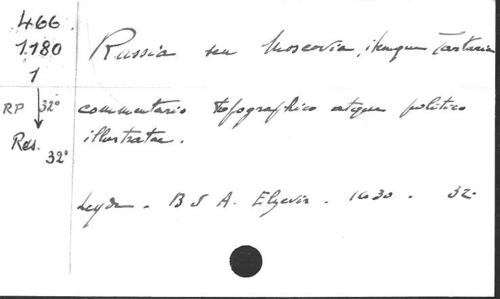 466
1.180
1
RP 32°
Res.
32°
Russia seu Moscovia, itemque Tartaria
commentario topographico atque politico
illustratae.
Leyde. B & A. Elzevir. 1630. 32°